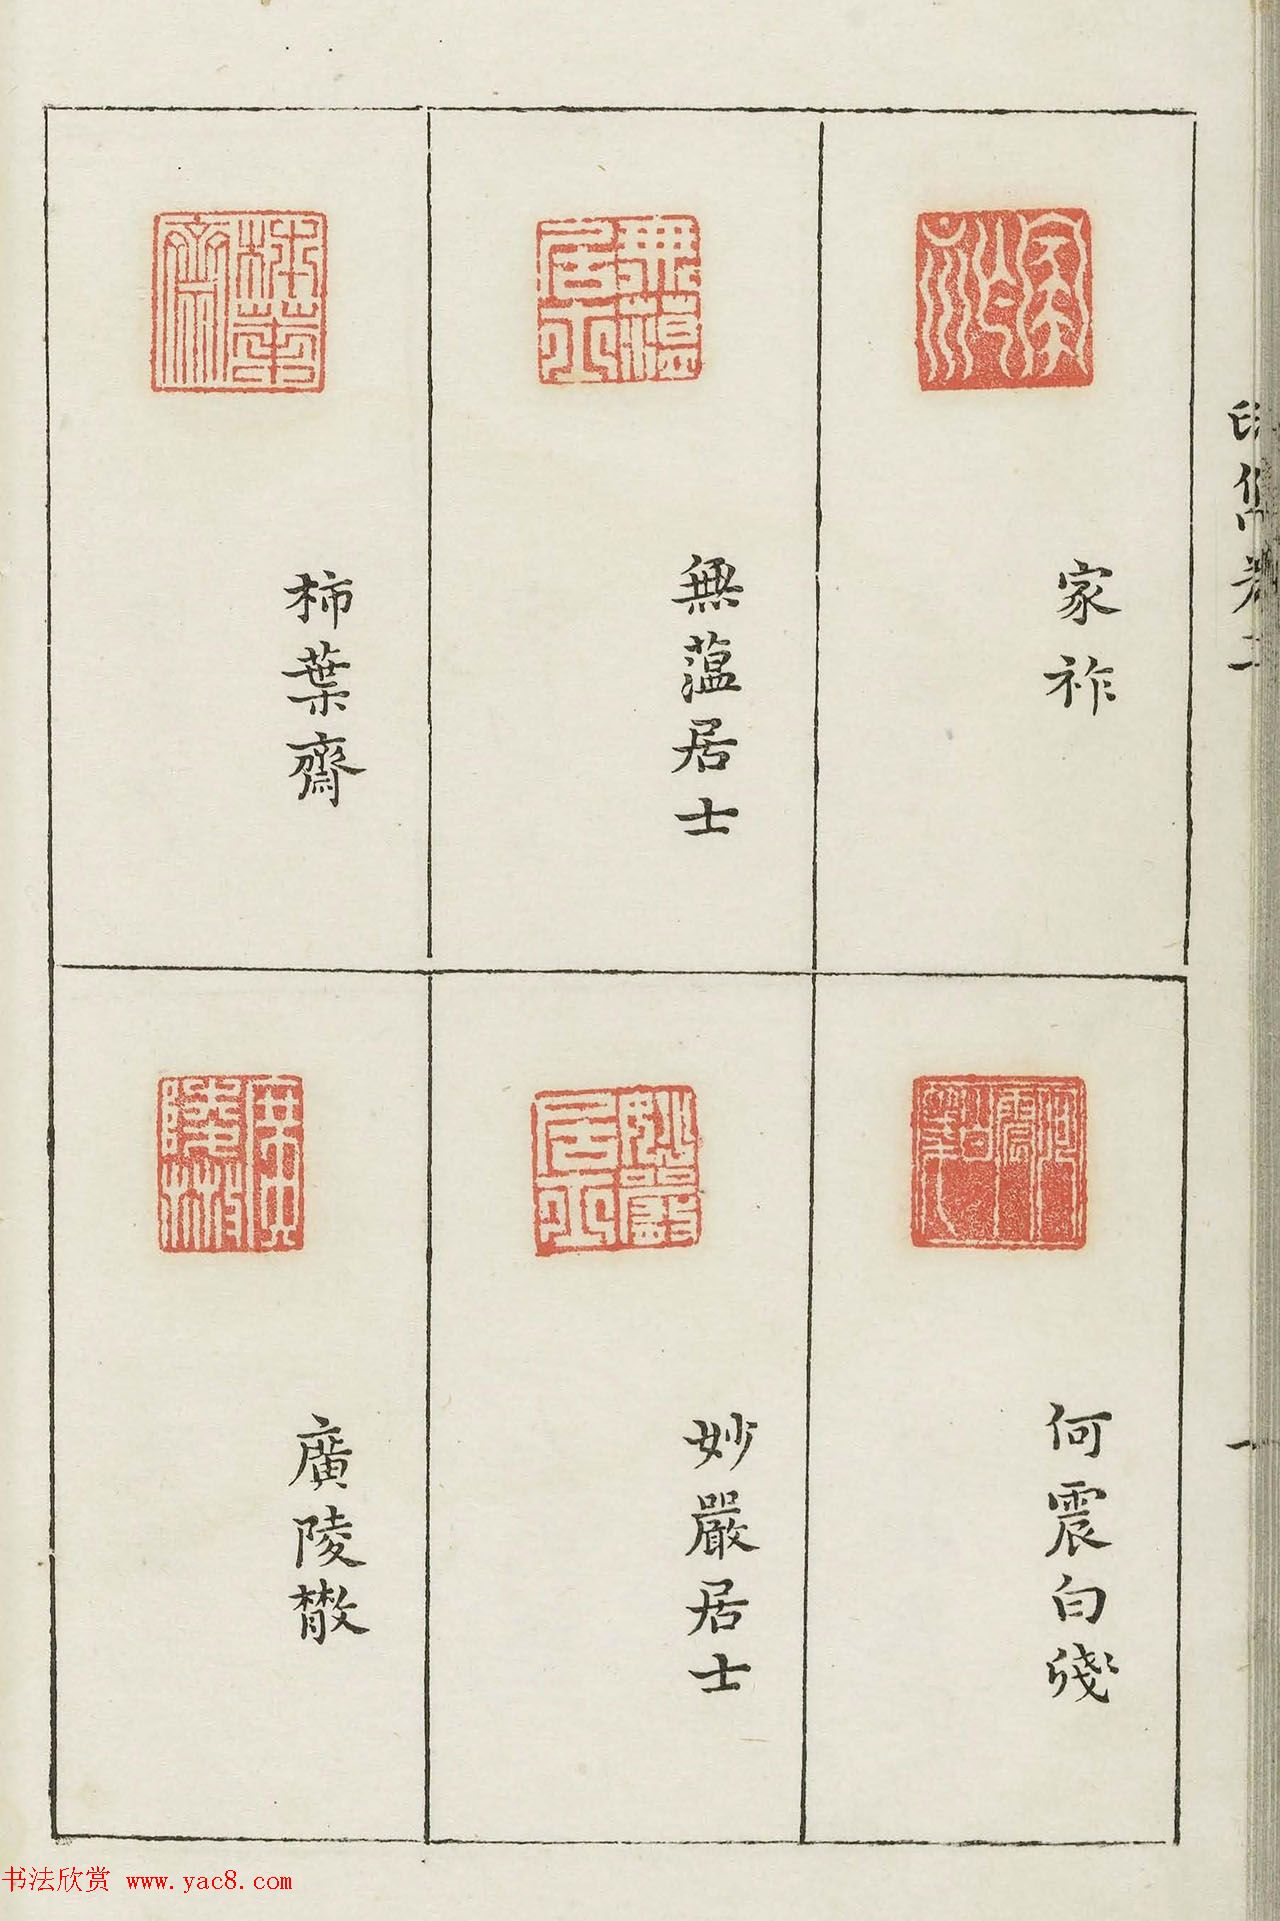 家祚
無薀居士
柿葉齋
何震白牋
妙嚴居士
廣陵散
一
书法欣赏 www.yac8.com